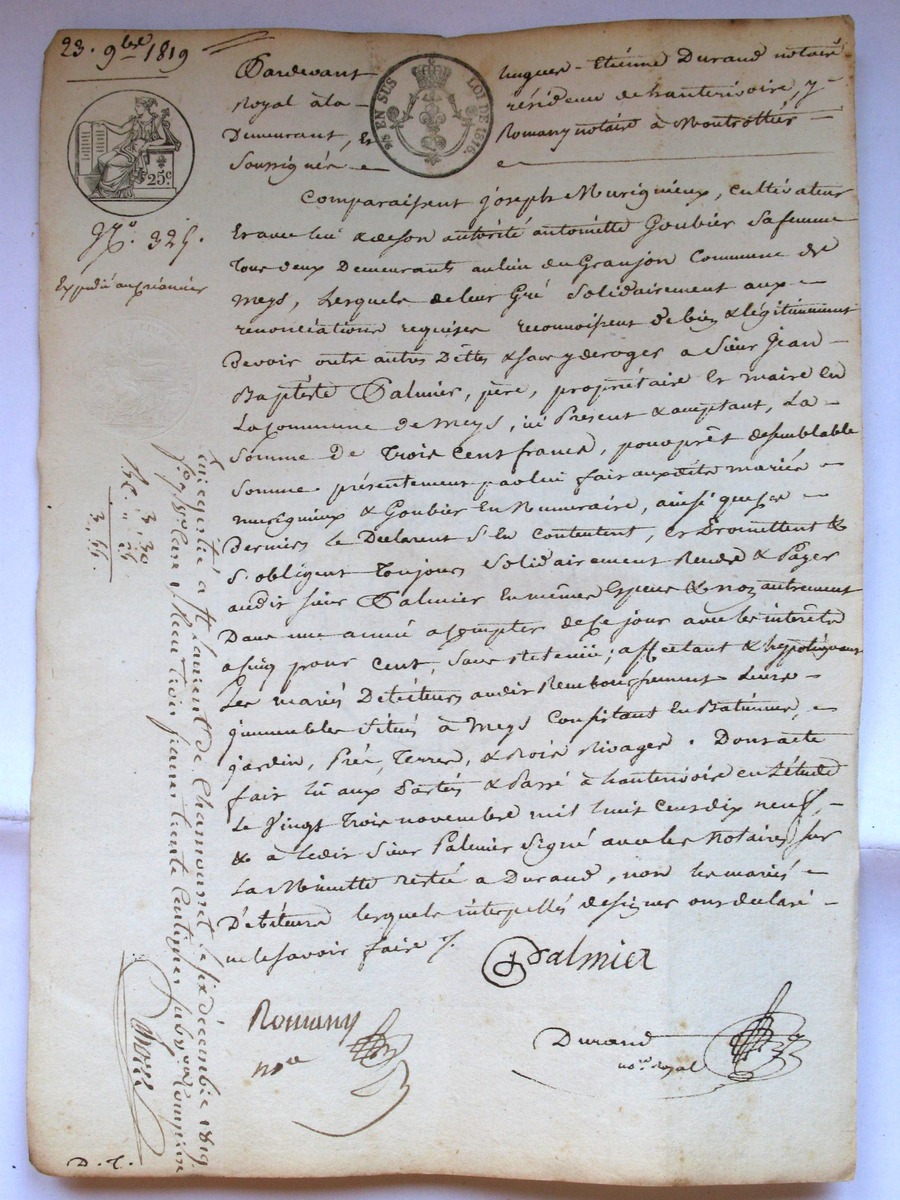 23. 9bre 1819
Pardevant hugues-Etiénne Durand notairé
Royal à la résidence de hauterivoire, &
Demeurant, Et Romany notaire à Montrottier
Soussignés
98 EN SUS LOI DE 1816.
25c.
No. 325.
Expédié au créancier
Comparaissent joseph Murigneux, cultivateur
Et avec lui & de son autorité antoinette Goubier sa femme
Tous deux Demeurants au lieu du Granjon Commune de
Meys, Lesquels de leur Gré Solidairement aux
renonciations requises reconnoissent de bien & légitimement
Devoir outre autres Dettes & sans y deroger a Sieur Jean
Baptiste Palmier, père, propriétaire Et maire En
La Commune de Meys, ici Present & acceptant, La
Somme de Trois Cent francs, pour prêt de semblable
Somme présentement par lui fait aux dits mariés
murigneux & Goubier En Numeraire, ainsi que ses
Derniers le Declarent S'En Contentent, Et Promettent &
S'obligent Toujours Solidairement Rendre & Payer
audit sieur Palmier En mêmes Especes & non autrement
Dans une année a compter de Ce jour avec les intérêts
a Cinq pour Cent, sans retenue; affectant & hypotéquant
Les mariés Débiteurs audit Remboursement Leurs
jmmeubles Situés à Meys Consistant En Batiments,
jardin, Pré, Terres, & Bois Rivages. Dont acte
fait lu aux Partes & Passé à hauterivoire en L'étude
Le Vingt Trois novembre mil huit Cent dix neuf,
& a Ledit Sieur Palmier Signé avec les Notaires sur
La Minutte restée a Durand, non les mariés
Débiteurs lesquels interpellés de signer ont déclaré
ne le savoir faire /.
Palmier
Romany
nre
Durand
not. Royal
Enregistré à St Laurent de Chamousset le six décembre 1819
Reçu trois francs trente Centimes Subvon Comprise
3. 30
3. 55.
D. T.